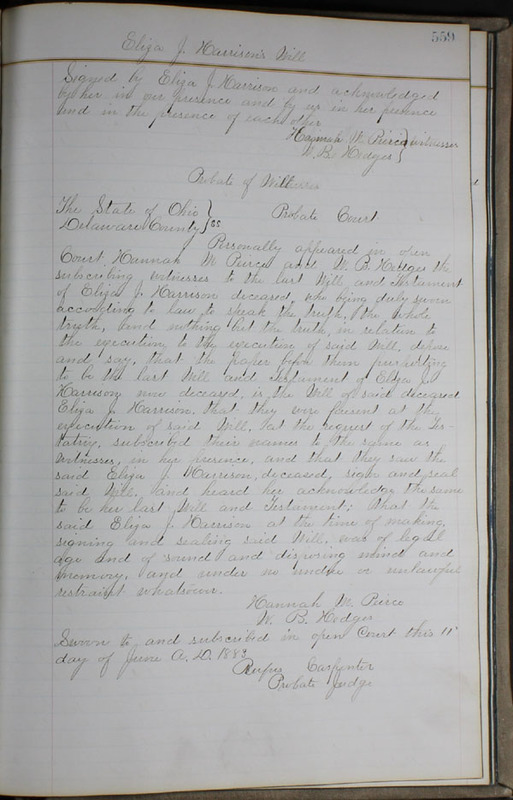 559
Eliza J. Harrison's Will
Signed by Eliza J. Harrison and acknowledged
by her in our presence and by us in her presence
and in the presence of each other
Hannah M. Pierce } witnesses
W. B. Hedges }
Probate of Witnesses
The State of Ohio } Probate Court
Delaware County } SS
Personally appeared in open
Court, Hannah M Pierce and W. B. Hedges the
subscribing witnesses to the last Will and Testament
of Eliza J. Harrison deceased, who being duly sworn
according to law to speak the truth, the whole
truth, and nothing but the truth, in relation to
the execution, to the execution of said Will, depose
and say, that the paper before them purporting
to be the last Will and Testament of Eliza J.
Harrison now deceased, is the Will of said deceased
Eliza J. Harrison, that they were present at the
execution of said Will, at the request of the Tes-
tatrix, subscribed their names to the same as
witnesses, in her presence, and that they saw the
said Eliza J. Harrison, deceased, sign and seal
said Will, and heard her acknowledge the same
to be her last Will and Testament; that the
said Eliza J. Harrison at the time of making,
signing and sealing said Will, was of legal
age and of sound and disposing mind and
memory, and under no undue or unlawful
restraint whatsoever.
Hannah M. Pierce
W. B. Hedges
Sworn to and subscribed in open Court this 11"
day of June A. D. 1889
Rufus Carpenter
Probate Judge